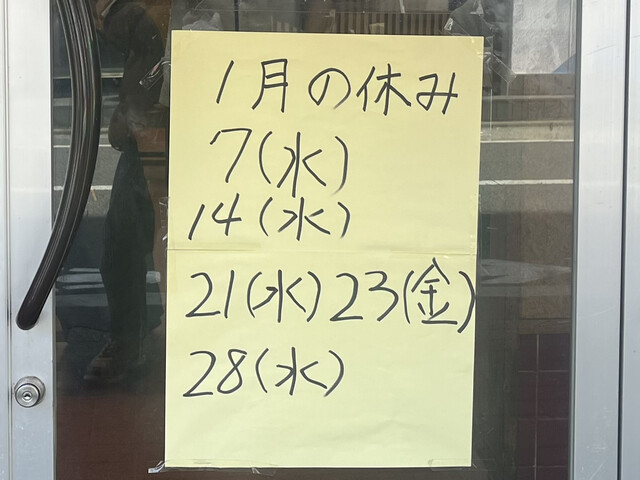 1月の休み
7(水)
14(水)
21(水)23(金)
28(水)